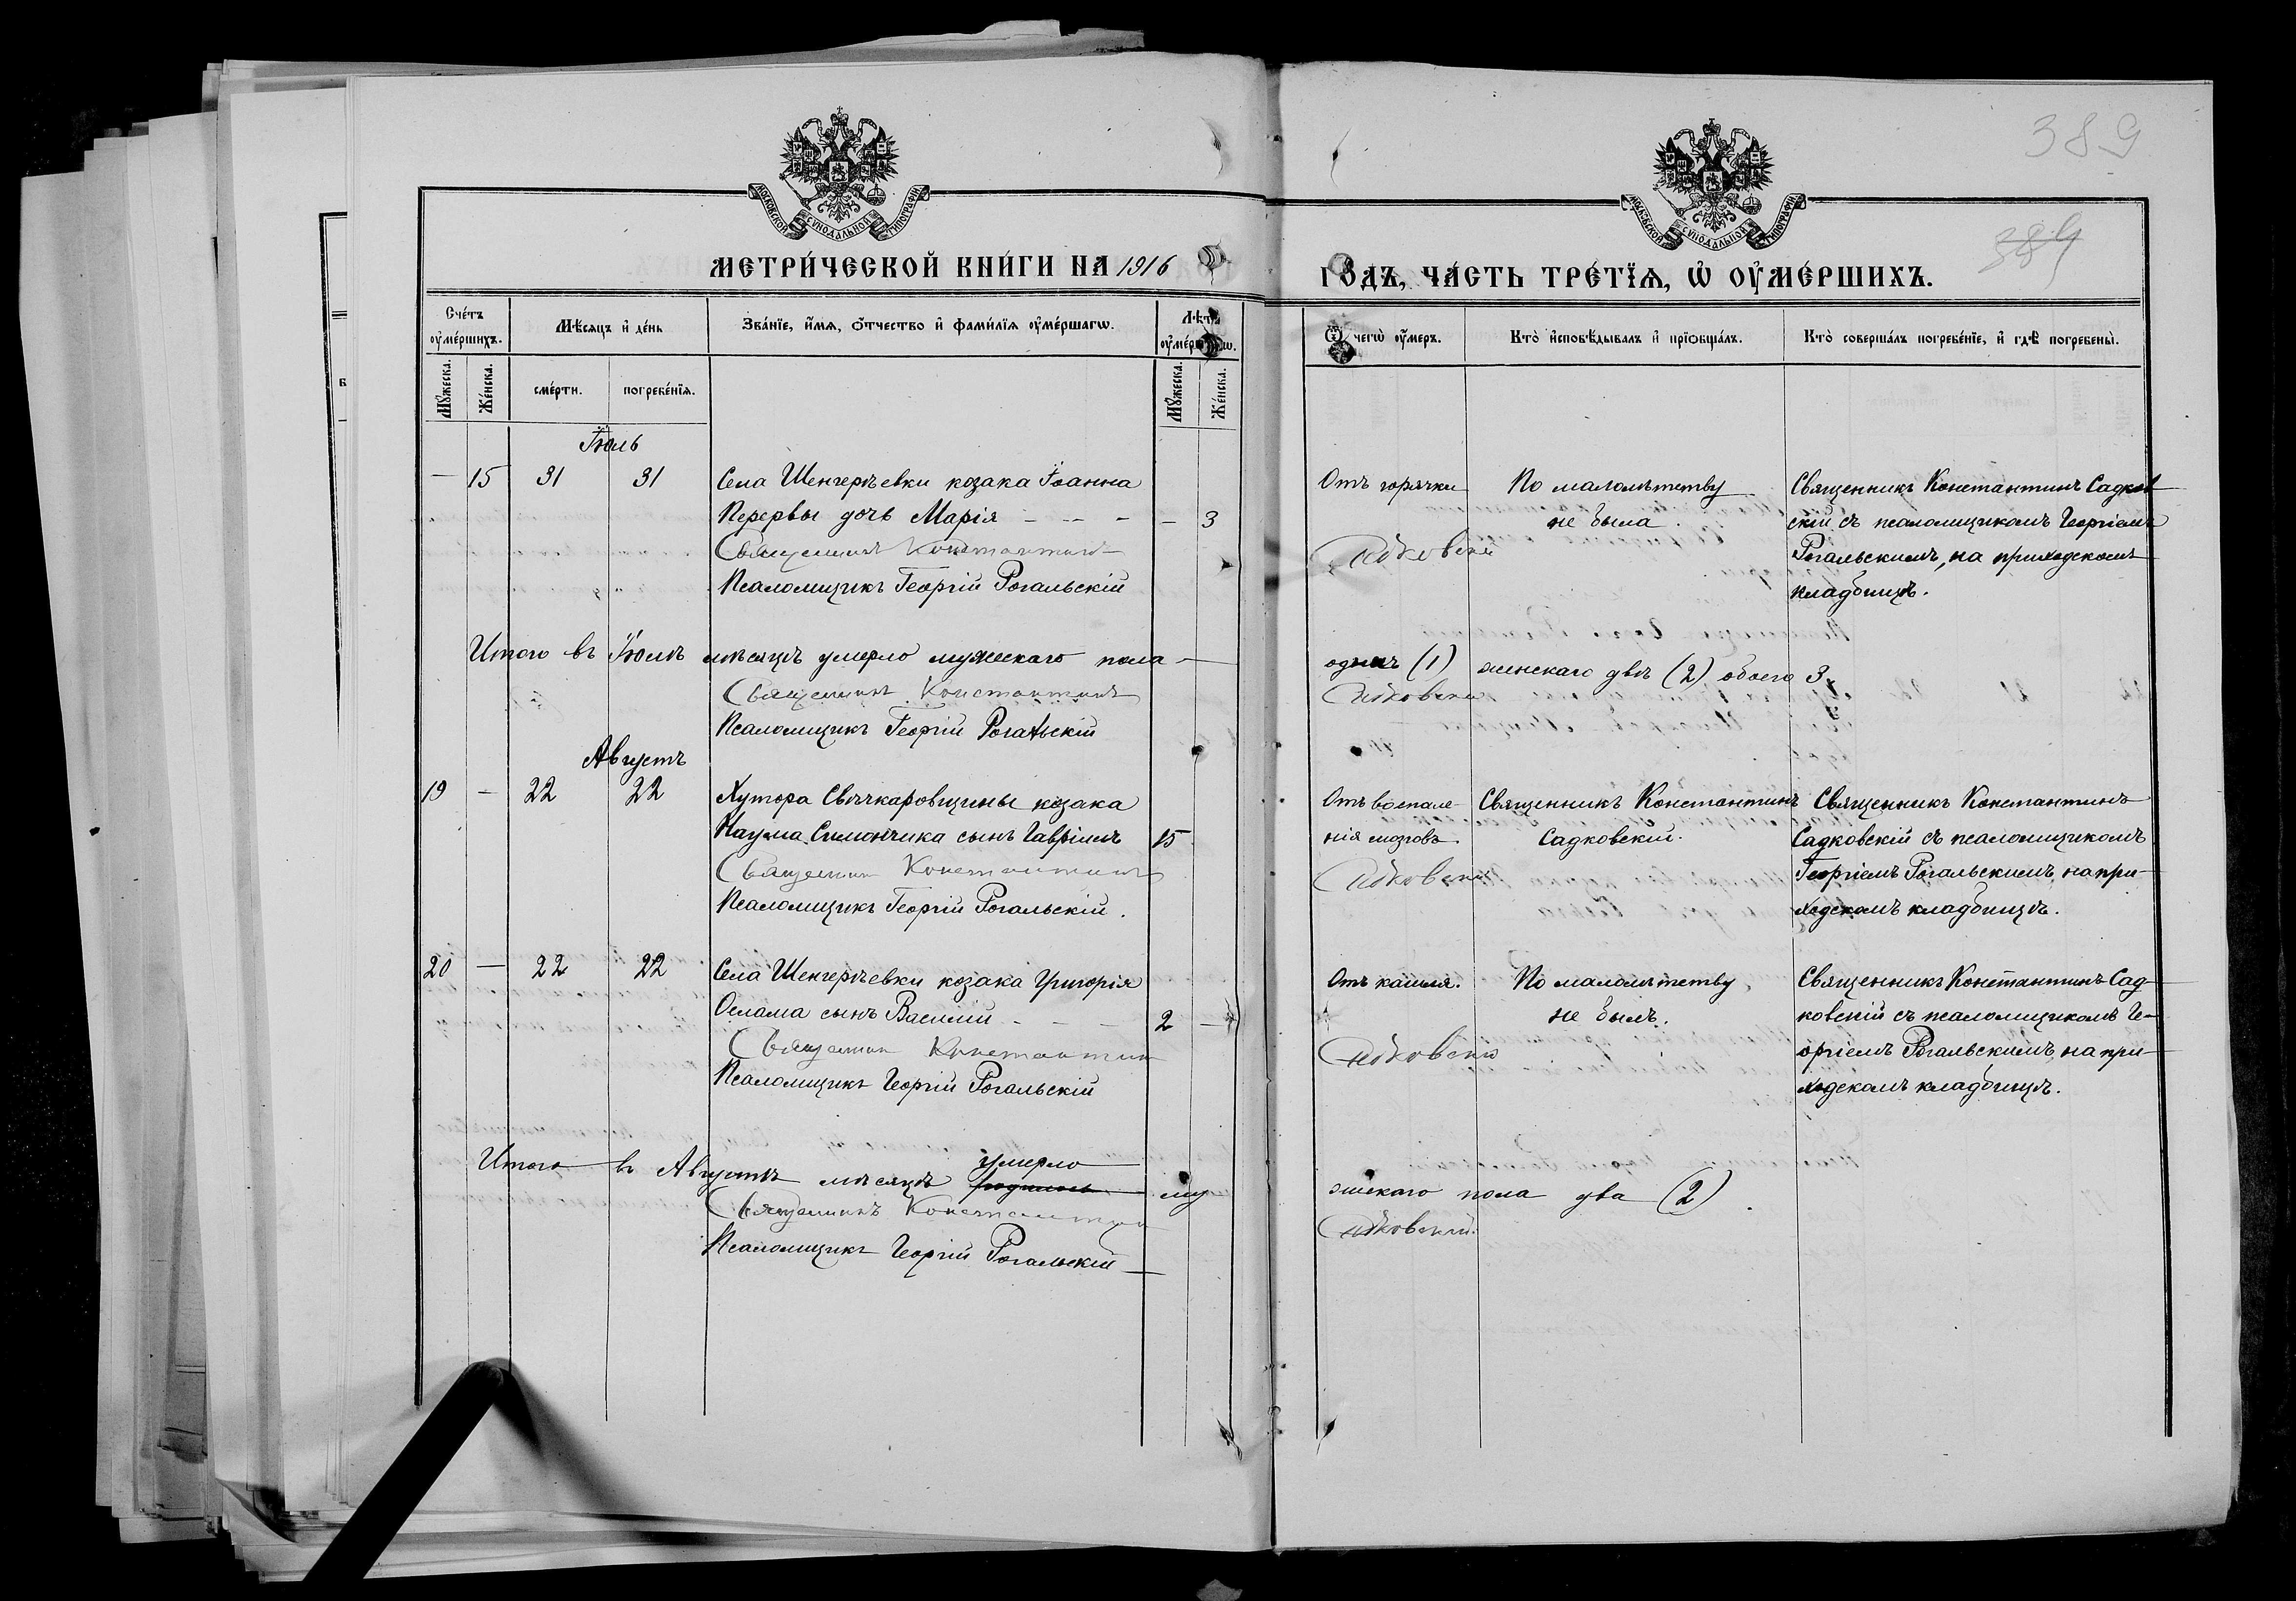 389
389
МОСКОВСКОЙ СѴНОДАЛЬНОЙ ТИПОГРАФІИ
МОСКОВСКОЙ СѴНОДАЛЬНОЙ ТИПОГРАФІИ
МЕТРИ́ЧЕСКОЙ КНИ́ГИ НА 1916
ГО́ДЪ, ЧА́СТЬ ТРЕ́ТЇѦ, Ѡ҆ ОУ҆МЕ́РШИХЪ.
Сче́тъ оу҆ме́ршихъ.
Мꙋ́жеска.
Же́нска.
Мѣ́сяцъ и҆ де́нь
сме́рти.
погребе́нїѧ.
Зва́нїе, и҆́мѧ, ѻ҆́тчество и҆ фами́лїѧ оу҆ме́ршагѡ.
Лѣ́та оу҆ме́ршагѡ.
Мꙋ́жеска.
Же́нска.
Ѿ чегѡ̀ оу҆́меръ.
Кто̀ и҆сповѣ́дывалъ и҆ прїѻбща́лъ.
Кто̀ соверша́лъ погребе́нїе, и҆ гдѣ̀ погребены̀.
Іюль
— 15 31 31 Села Шенгерѣевки козака Іоанна
Перервы дочь Марія - - - — 3
Священникъ Константинъ
Псаломщикъ Георгій Рогальскій
Отъ горячки
Садковскій
По малолѣтству
не была.
Священникъ Константинъ Садков
скій съ псаломщикомъ Георгіемъ
Рогальскимъ, на приходскомъ
кладбищѣ.
Итого въ Іюлѣ мѣсяцѣ умерло мужескаго пола — одинъ (1) женскаго двѣ (2) обоего 3.
Священникъ Константинъ Садковскій
Псаломщикъ Георгій Рогальскій
Августъ
19 — 22 22 Хутора Свѣчкаровщины козака
Наума Симончика сынъ Гавріилъ 15
Священникъ Константинъ
Псаломщикъ Георгій Рогальскій.
Отъ воспале-
нія мозговъ.
Садковскій
Священникъ Константинъ
Садковскій.
Священникъ Константинъ
Садковскій съ псаломщикомъ
Георгіемъ Рогальскимъ, на при-
ходскомъ кладбищѣ.
20 — 22 22 Села Шенгерѣевки козака Григорія
Ослама сынъ Василій - - - 2 —
Священникъ Константинъ
Псаломщикъ Георгій Рогальскій
Отъ кашля.
Садковскій
По малолѣтству
не былъ.
Священникъ Константинъ Сад-
ковскій съ псаломщикомъ Ге-
оргіемъ Рогальскимъ, на при-
ходскомъ кладбищѣ.
умерло
Итого въ Августѣ мѣсяцѣ родилось му жескаго пола два (2).
Священникъ Константинъ Садковскій.
Псаломщикъ Георгій Рогальскій